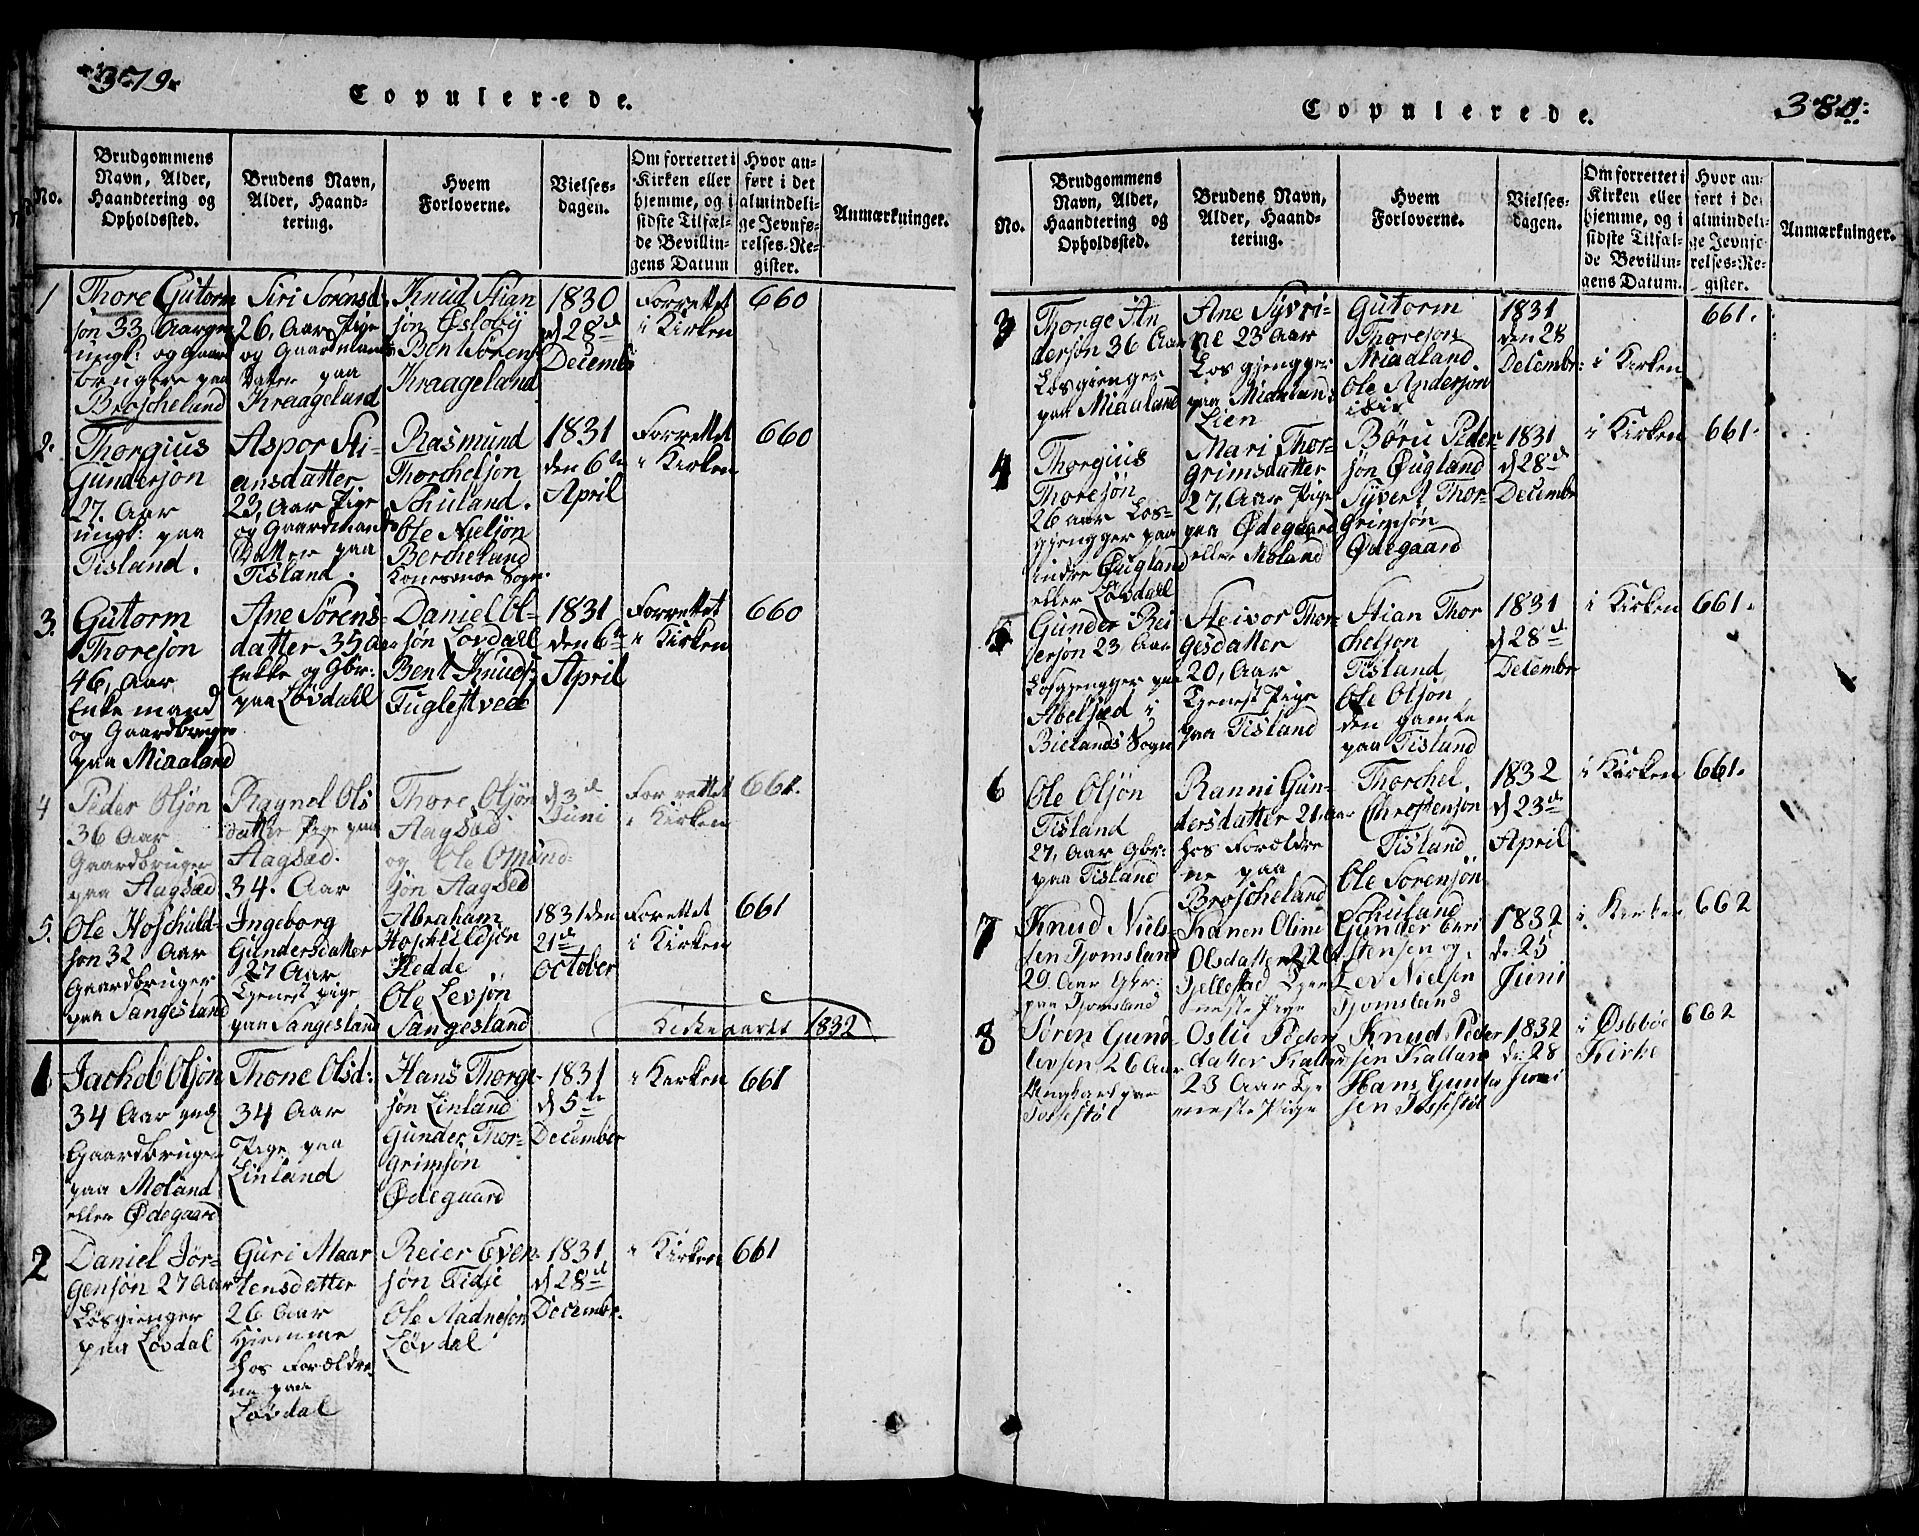 379.
Copulerede.
No.
Brudgommens
Navn, Alder,
Haandtering og
Opholdssted.
Brudens Navn,
Alder, Haand-
tering.
Hvem
Forloverne.
Vielses-
dagen.
Om forrettet i
Kirken eller
hjemme, og i
sidste Tilfæl-
de Bevillin-
gens Datum
Hvor an-
ført i det
almindeli-
ge Jevnfø-
relses-Re-
gister.
Anmærkninger.
1
Thore Gutorm
søn 33 Aar gm
ungk: og Gaard
bruger paa
Broscheland
Siri Sørensd.
26, Aar Pige
og Gaardmands
Datter paa
Kraageland
Knud Stian
søn Øsloby
Bent Sørens
Kraageland
1830
d 28d
Decembr
Forrettet
i Kirken
660
2.
Thorgius
Gundersøn
27. Aar
ungk: paa
Tisland.
Aspor Sti-
ansdatter
23, Aar Pige
og Gaardmands
Datter paa
Tisland.
Rasmund
Thorchelsøn
Schuland.
Ole Nielsøn
Bercheland
Konesmoe Sogn
1831
den 6te
April
Forrettet
i Kirken
660
3.
Gutorm
Thoresøn
46, Aar
Enke mand
og Gaardbruger
paa Miaaland
Ane Sørens
datter 35 Aa
Enke og Gbr:
paa Løvdahl
Daniel Ol-
søn Lovdall
Bent Knuds
Fuglestved
1831
den 6te
April
Forrettet
i Kirken
660
4
Peder Olsøn
36 Aar
Gaardbruger
paa Aagsæd
Ragnel Ols
datter Pige paa
Aagsæd.
34. Aar
Thore Olsøn
Aagsæd
og Ole Omund
søn Aagsed
d 3d
Juni
Forrettet
i Kirken
661.
5.
Ole Hoschuld-
søn 32 Aar
Gaardbruger
paa Sangesland
Ingeborg
Gundersdatter
27 Aar
Tjenest pige
paa Sangesland
Abraham
Hoschildsøn
Hedde
Ole Levsøn
Sangesland
1831 den
21d
October
Forettet
i Kirken
661
Kirkeaaret 1832
1
Jachob Olsøn
34 Aar ung
Gaardbruger
paa Moland
eller Ødegaard
Thone Olsd:
34 Aar
Pige paa
Linland
Hans Thorge-
søn Linland
Gunder Thor-
grimsøn
Ødegaard
1831
d 5te
December
i Kirken
661
2
Daniel Jør-
gensøn 27 Aar
Løsgienger
paa Løvdal
Guri Maar
tensdatter
26 Aar
Hjemme
hos Forældre
ne paa
Løvdal
Reier Even-
søn Eidje
Ole Aadnesøn
Løvdal
1831
d 28d
Decembr.
i Kirken
661
380.
Copulerede.
No.
Brudgommens
Navn, Alder,
Haandtering og
Opholdssted.
Brudens Navn,
Alder, Haand-
tering.
Hvem
Forloverne.
Vielses-
dagen.
Om forrettet i
Kirken eller
hjemme, og i
sidste Tilfæl-
de Bevillin-
gens Datum.
Hvor an-
ført i det
almindeli-
ge Jevnfø-
relses-Re-
gister.
Anmærkninger.
3
Thorge An
dersøn 36 Aar
Løsgienger
paa Miaaland
Ane Syvri-
ne 23 Aar
Løsgjengger
paa Midalands
Lien
Gutorm
Thoresøn
Miadland
Ole Andersøn
ibid
1831
den 28
Decembr:
i Kirken
661.
4
Thorgius
Thoresøn
26 aar Løs-
gjengger paa
indre Øugland
eller Løvdall
Mari Thor-
grimsdatter
27, Aar Pige
paa Ødegaard
eller Moland
Børu Peder
søn Øugland
Syvert Thor-
grimsøn
Ødegaard
1831
d 28d
Decembr
i Kirken
661.
5
Gunder Rei
ersøn 23 Aar
Løsgjengger paa
Abelsæd i
Bielands Sogn
Steivor Thor-
gesdatter
20, Aar
Tjenest Pige
paa Tisland
Stian Thor
chelsøn
Tisland
Ole Olsøn
den gamle
paa Tisland
1831
d 28d
Decembr
i Kirken
661.
6
Ole Olsøn
Tisland
27, Aar Gbr:
paa Tisland
Ranni Gun-
dersdatter 21, Aar
hos Forældre
ne paa
Broscheland
Thorchel
Chrestensøn
Tisland
Ole Sørensøn
Schuland
1832
d 23d
April
i Kirken
661.
7
Knud Niels-
sen Tjomsland
29. Aar Gbr.
paa Tjomsland
Karen Oline
Olsdatter 22 A
Tjellestad Tjen
neste Pige
Gunder Chri
stensen og
Lev Nielsen
Tjomsland
1832
d. 25
Juni
i Kirken
662
8
Søren Gund-
levsen 26 Aar
Ungkarl paa
Tossestøl
Oslu Peders
datter Kallan
23 Aar Tje
neste Pige
Knud Peder
sen Kallan
Hans Gunla
sen Tossestøl
1832
d. 28
Juni
i Osebøe
Kirke
662